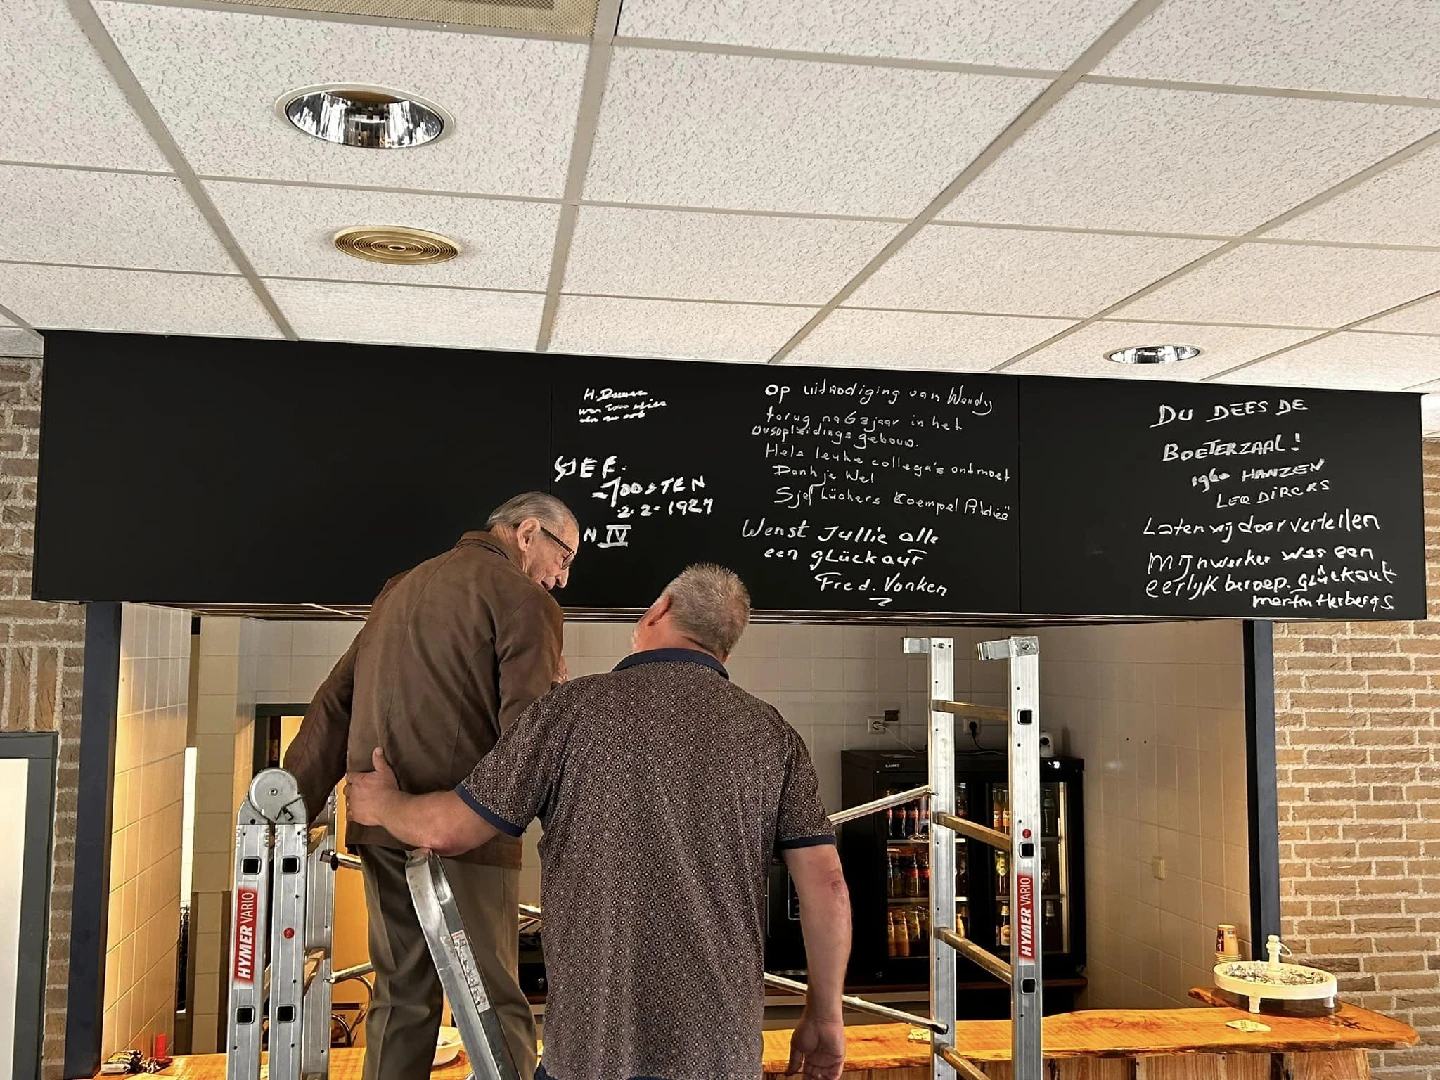 H.
SJEF.
JOOSTEN
2-2-1927
N IV
Op uitnodiging van Wendy
terug na 63 jaar in het
Ousopleidings gebouw.
Hele leuke collega's ontmoet
Dank je Wel
Sjef Lückers Koempel Aldieë
Wenst Jullie alle
een glückauf
Fred. Vonken
DU DEES DE
BOETERZAAL!
1960 HANZEN
LEO DIRCKS
Laten wij door vertellen
Mijnwerker was een
eerlijk beroep. glückauf
martin Herbergs
HYMER VARIO
HYMER VARIO